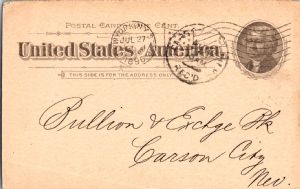 POSTAL CARD ONE CENT.
United States of America.
JUL 27
REC'D
THIS SIDE IS FOR THE ADDRESS ONLY
Bullion & Exchge Bk
Carson City
Nev.